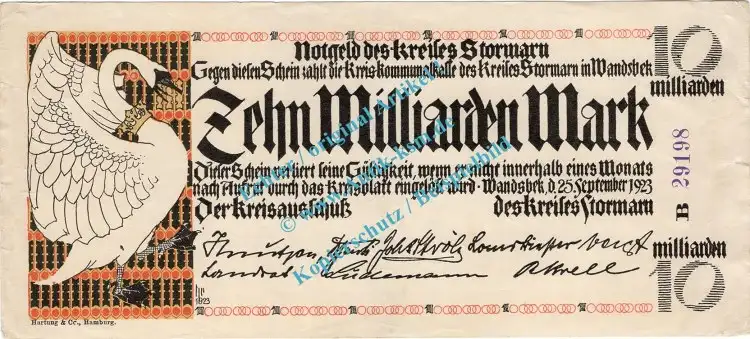 Notgeld des Kreises Stormarn
Gegen diesen Schein zahlt die Kreiskommunalkasse des Kreises Stormarn in Wandsbek
10
milliarden
Zehn Milliarden Mark
Dieser Schein verliert seine Gültigkeit, wenn er nicht innerhalb eines Monats
nach Aufruf durch das Kreisblatt eingelöst wird - Wandsbek, d. 25 September 1923
Der Kreisausschuß des Kreises Stormarn
B 29198
Knutzen
Landrat Lüdemann
milliarden
10
1923
Hartung & Co., Hamburg.
original Artikel
© www.
Kopierschutz / Beispielbild